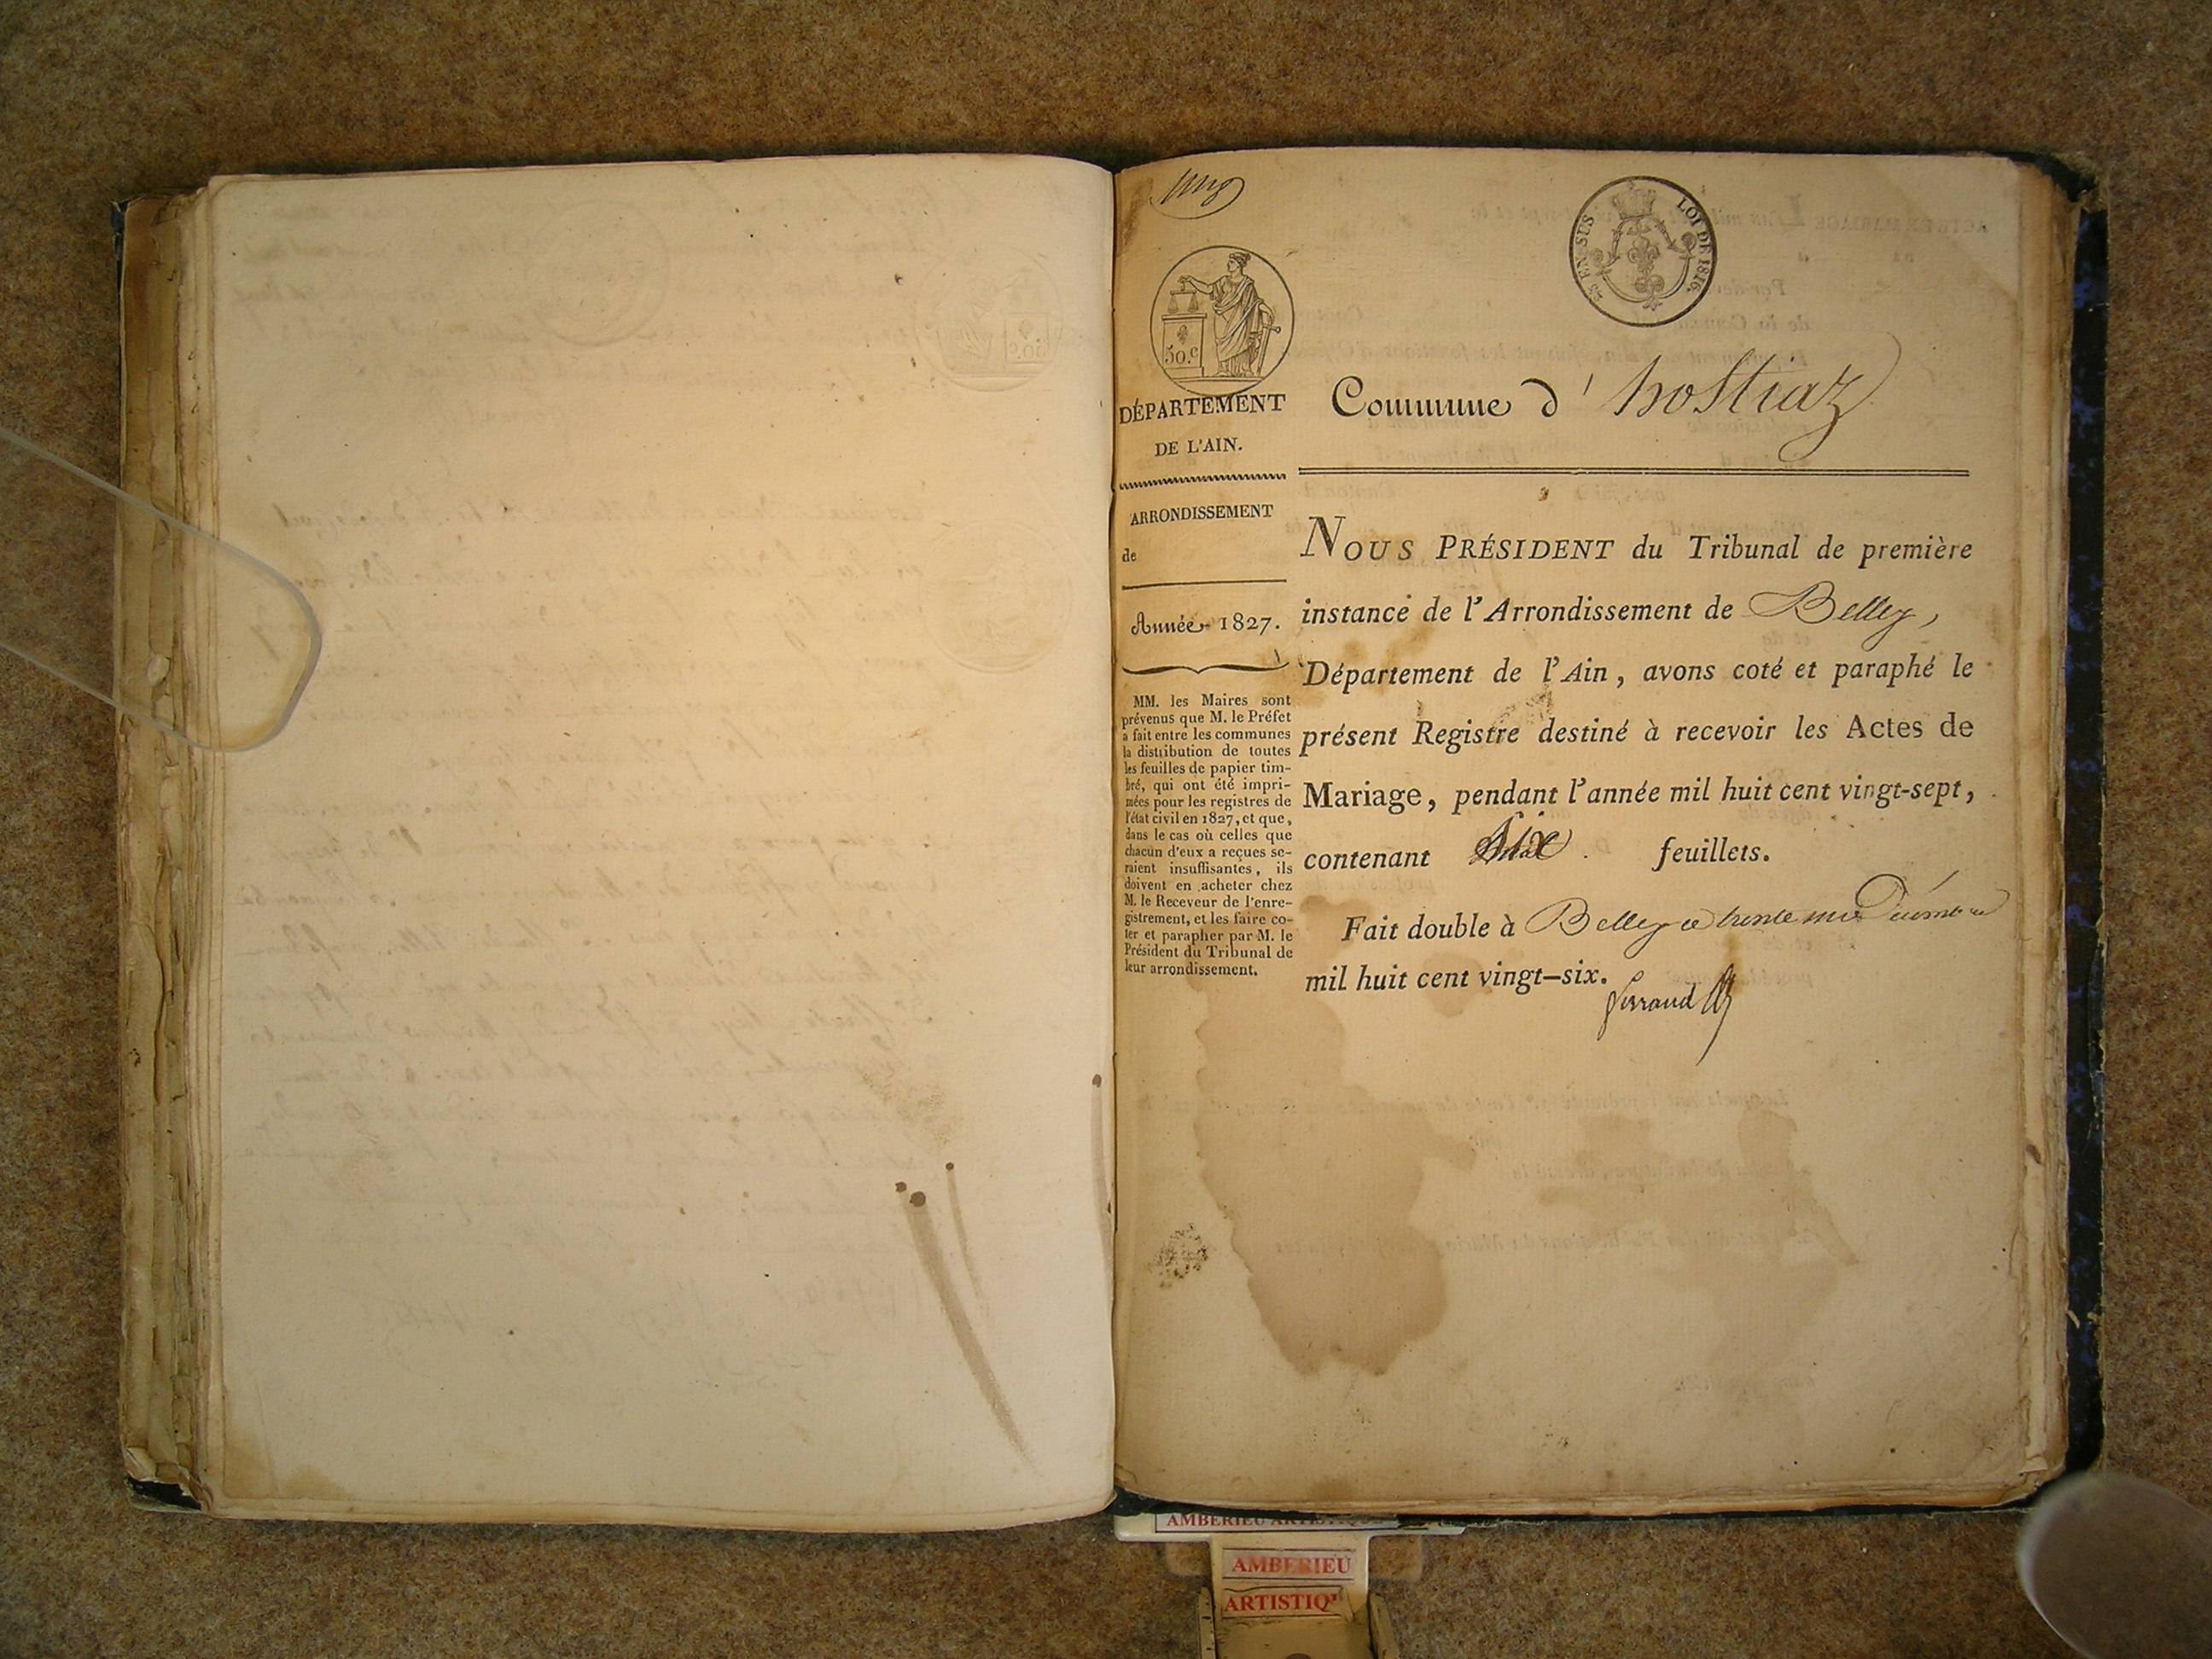 50.c
25 EN SUS
LOI DE 1816.
DÉPARTEMENT
DE L'AIN.
ARRONDISSEMENT
de
Année 1827.
MM. les Maires sont
prévenus que M. le Préfet
a fait entre les communes
la distribution de toutes
les feuilles de papier tim-
bré, qui ont été impri-
mées pour les registres de
l'état civil en 1827, et que,
dans le cas où celles que
chacun d'eux a reçues se-
raient insuffisantes, ils
doivent en acheter chez
M. le Receveur de l'enre-
gistrement, et les faire co-
ter et parapher par M. le
Président du Tribunal de
leur arrondissement.
Commune d' hostiaz
NOUS PRÉSIDENT du Tribunal de première
instance de l'Arrondissement de Belley,
Département de l'Ain, avons coté et paraphé le
présent Registre destiné à recevoir les Actes de
Mariage, pendant l'année mil huit cent vingt-sept,
contenant Six feuillets.
Fait double à Belley ce trente un Décembre
mil huit cent vingt-six.
AMBERIEU
AMBERIEU
ARTISTIQ